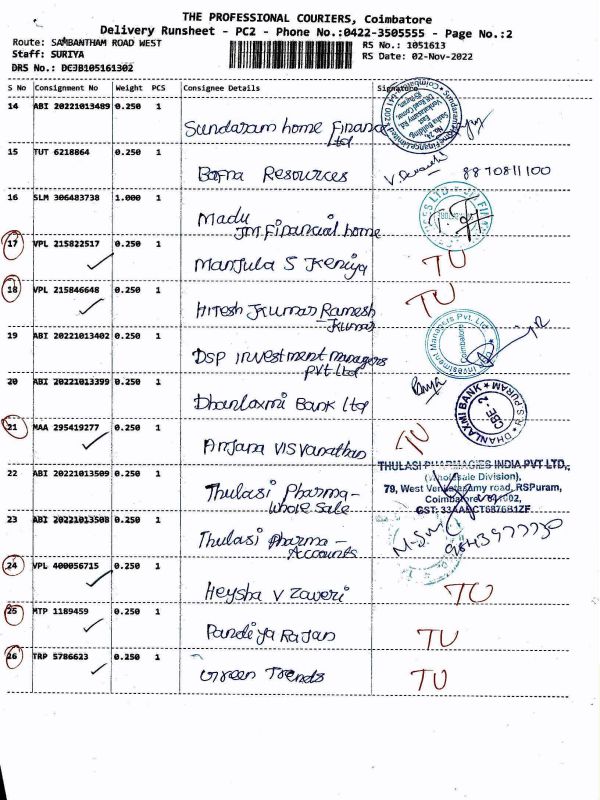 THE PROFESSIONAL COURIERS, Coimbatore
Delivery Runsheet - PC2 - Phone No.:0422-3505555 - Page No.:2
Route: SAMBANTHAM ROAD WEST
RS No.: 1051613
Staff: SURIYA
RS Date: 02-Nov-2022
DRS No.: DCJB105161302
S No Consignment No Weight PCS Consignee Details Signature
14 ABI 20221013489 0.250 1
Sundaram home Finance
Ltd
15 TUT 6218864 0.250 1
Bafna Resources
8870811100
16 SLM 306483738 1.000 1
Madu
JM Financial home
17 VPL 215822517 0.250 1
Manjula S Keniya TU
18 VPL 215846648 0.250 1
Hitesh Kumar Ramesh TU
Kumar
19 ABI 20221013402 0.250 1
DSP investment managers
Pvt Ltd
Investment Managers Pvt. Ltd
Coimbatore
20 ABI 20221013399 0.250 1
Dhanlaxmi Bank Ltd
DHANLAXMI BANK R S PURAM
CBE - 2
21 MAA 295419277 0.250 1
Anjana Visvanathan TU
THULASI PHARMACIES INDIA PVT LTD.,
(Wholesale Division),
22 ABI 20221013509 0.250 1
79, West Venketasamy road, RSPuram,
Thulasi Pharma -
Whole Sale
Coimbatore 641002,
GST: 33AABCT6876B1ZF
23 ABI 20221013508 0.250 1
Thulasi Pharma -
Accounts
9843977730
24 VPL 400056715 0.250 1
Heysha V Zaveri TU
25 MTP 1189459 0.250 1
Pandiya Rajan TU
26 TRP 5786623 0.250 1
Green Trends TU